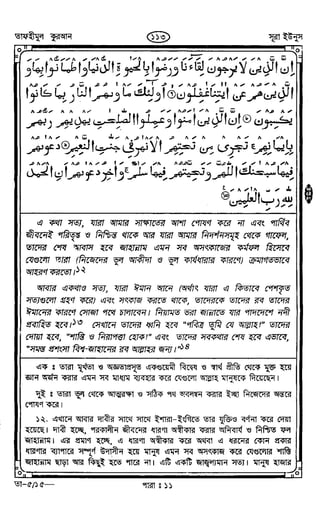 তাফহীমুল কুরআন
১১৩
সূরা ইউনুস
إِنَّ الَّذِينَ لَا يَرْجُونَ لِقَاءَنَا وَرَضُوا بِالْحَيٰوةِ الدُّنْيَا وَاطْمَأَنُّوا بِهَا وَ
الَّذِينَ هُمْ عَنْ اٰيٰتِنَا غٰفِلُونَ ۞ أُولٰئِكَ مَأْوٰىهُمُ النَّارُ بِمَا كَانُوا
يَكْسِبُونَ ۞ إِنَّ الَّذِينَ اٰمَنُوا وَعَمِلُوا الصّٰلِحٰتِ يَهْدِيهِمْ رَبُّهُمْ
بِإِيمَانِهِمْ تَجْرِي مِنْ تَحْتِهِمُ الْأَنْهٰرُ فِي جَنّٰتِ النَّعِيمِ ۞ دَعْوٰىهُمْ
فِيهَا سُبْحٰنَكَ اللّٰهُمَّ وَتَحِيَّتُهُمْ فِيهَا سَلٰمٌ وَاٰخِرُ دَعْوٰىهُمْ أَنِ الْحَمْدُ
لِلّٰهِ رَبِّ الْعٰلَمِينَ ۞
এ কথা সত্য, যারা আমার সাক্ষাতের আশা পোষণ করে না এবং পার্থিব
জীবনেই পরিতৃপ্ত ও নিশ্চিন্ত থাকে আর যারা আমার নিদর্শনসমূহ থেকে গাফেল,
তাদের শেষ আবাস হবে জাহান্নাম এমন সব অসৎকাজের কর্মফল হিসেবে
যেগুলো তারা (নিজেদের ভুল আকীদা ও ভুল কার্যধারার কারণে) ক্রমাগতভাবে
আহরণ করতো।১২
আবার একথাও সত্য, যারা ঈমান আনে (অর্থাৎ যারা এ কিতাবে পেশকৃত
সত্যগুলো গ্রহণ করে) এবং সৎকাজ করতে থাকে, তাদেরকে তাদের রব তাদের
ঈমানের কারণে সোজা পথে চালাবেন। নিয়ামত ভরা জান্নাতে যার পাদদেশে নদী
প্রবাহিত হবে।১৩ সেখানে তাদের ধ্বনি হবে “পবিত্র তুমি হে আল্লাহ!” তাদের
দোয়া হবে, “শান্তি ও নিরাপত্তা হোক!” এবং তাদের সবকথার শেষ হবে এভাবে,
“সমস্ত প্রশংসা বিশ্ব-জাহানের রব আল্লাহর জন্য।”১৪
এক : তারা মূর্খতা ও অজ্ঞতাপ্রসূত একগুয়েমী বিদ্বেষ ও স্বার্থ প্রীতি থেকে মুক্ত হয়ে
জ্ঞান অর্জন করার এমন সব মাধ্যম ব্যবহার করে যেগুলো আল্লাহ মানুষকে দিয়েছেন।
দুই : তারা ভুল থেকে আত্মরক্ষা ও সঠিক পথ অবলম্বন করার ইচ্ছা নিজেদের অন্তরে
পোষণ করে।
১২. এখানে আবার দাবীর সাথে সাথে ইশারা-ইংগিতে তার যুক্তিও বর্ণনা করে দেয়া
হয়েছে। দাবী হচ্ছে, পরকালীন জীবনের ধারণা অস্বীকার করার অনিবার্য ও নিশ্চিত ফল
জাহান্নাম। এর প্রমাণ হচ্ছে, এ ধারণা অস্বীকার করে অথবা এ ধরনের কোন প্রকার
ধারণার ব্যাপারে সম্পূর্ণ উদাসীন হয়ে মানুষ এমন সব অসৎকাজ করে যেগুলোর শাস্তি
জাহান্নাম ছাড়া আর কিছুই হতে পারে না। এটি একটি জাজ্বল্যমান সত্য। মানুষ হাজার
তা-৫/১৫—
পারা : ১১